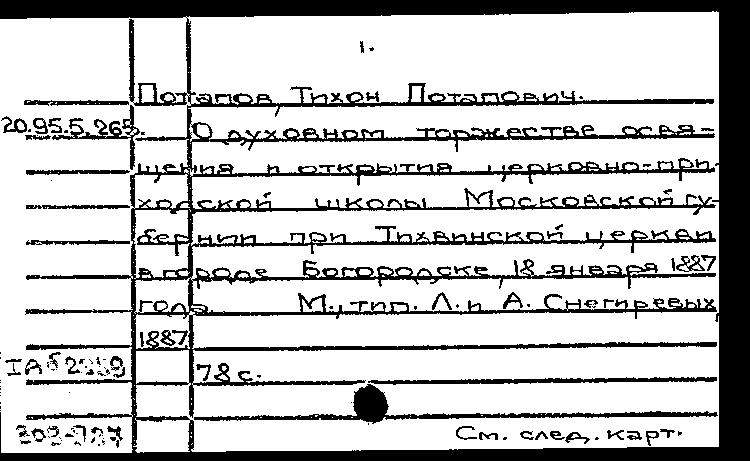 1.
Потапов, Тихон Потапович.
20.95.5.265. О духовном торжестве освя-
щения и открытия церковно-при-
ходской школы Московской гу-
бернии при Тихвинской церкви
в городе Богородске, 18 января 1887
года. М., тип. Л. и А. Снегиревых,
1887
IAб
78 с.
См. след. карт.